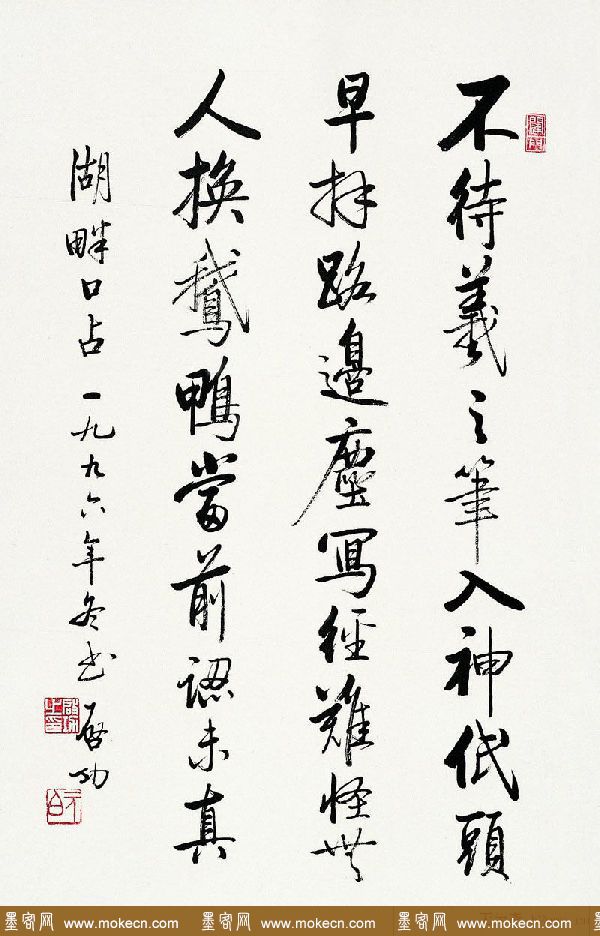 不待羲之筆入神低頭
早拜路邊塵寫經難怪無
人換鵝鴨當前認未真
湖畔口占 一九九六年冬书 啓功
元白
墨客网 www.mokecn.com 墨客网 www.mokecn.com 墨客网 www.mokecn.com